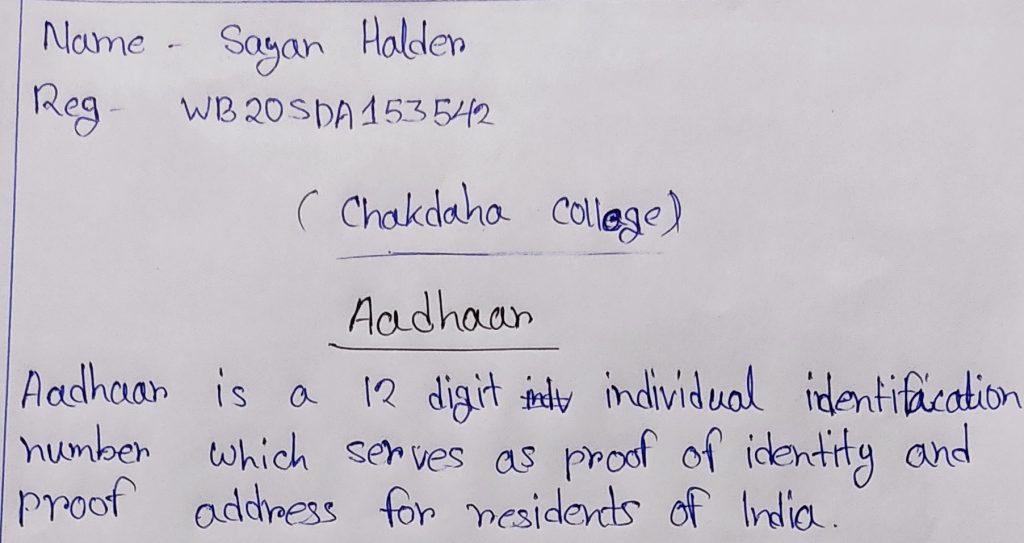 Name - Sayan Halder
Reg - WB20SDA153542
(Chakdaha College)
Aadhaar
Aadhaar is a 12 digit individual identification
number which serves as proof of identity and
proof address for residents of India.